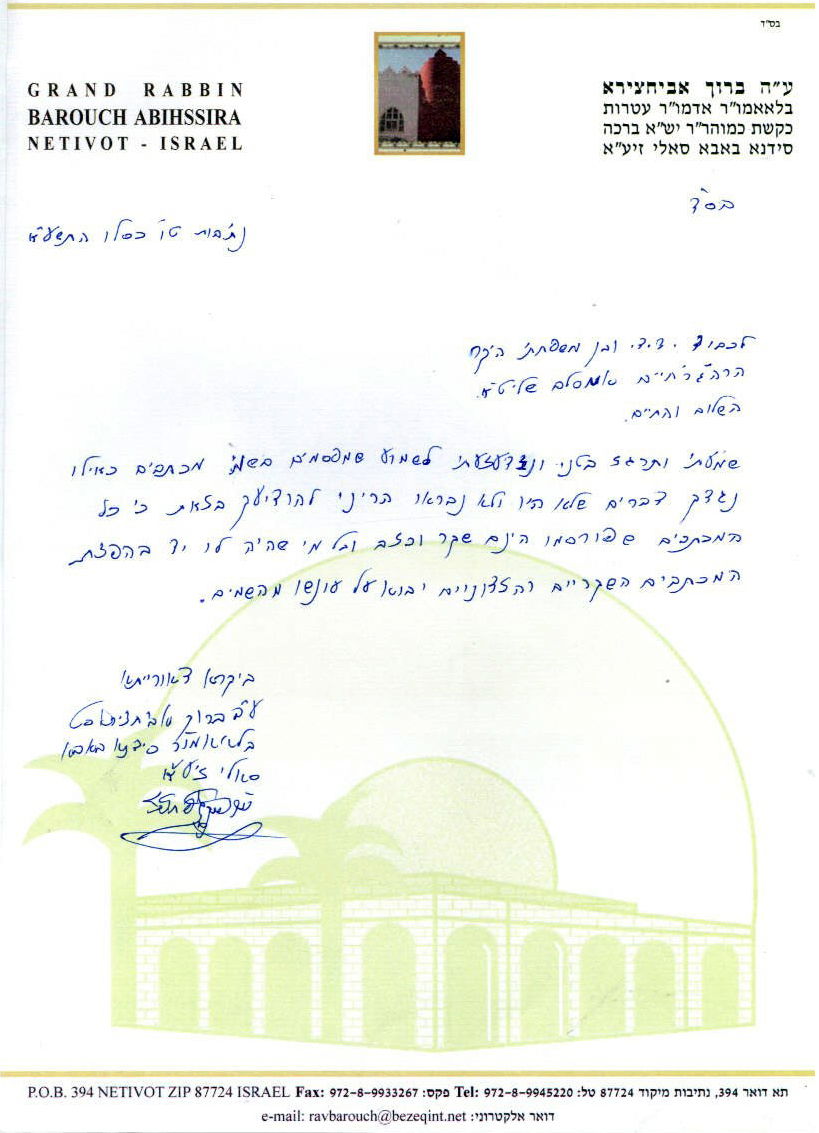 בס"ד
GRAND RABBIN
BAROUCH ABIHSSIRA
NETIVOT - ISRAEL
ע"ה ברוך אביחצירא
בלאאמו"ר אדמו"ר עטרות
כקשת כמוהר"ר יש"א ברכה
סידנא באבא סאלי זיע"א
בס"ד
נתיבות טו' כסלו התשע"א
לכבוד י.ד.י. ובן משפחתי היקר
הרה"ג ר' חיים אמסלם שליט"א
השלום והחיים.
שמעתי ותרגז בטני ונזדעזעתי לשמוע שמפרסמים בשמי מכתבים כאילו
נגדך דברים שלא היו ולא נבראו הריני להודיעך בזאת כי כל
המכתבים שפורסמו הינם שקר וכזב וכל מי שהיה לו יד בהפצת
המכתבים השקריים והזדוניים יבוא על עונשו מהשמים.
ביקרא דאורייתא
ע"ה ברוך אביחצירא
בלאאמו"ר סידנא באבא
סאלי זיע"א
תא דואר 394, נתיבות מיקוד 87724 טל: Tel: 972-8-9945220 פקס: Fax: 972-8-9933267 P.O.B. 394 NETIVOT ZIP 87724 ISRAEL
דואר אלקטרוני: e-mail: ravbarouch@bezeqint.net